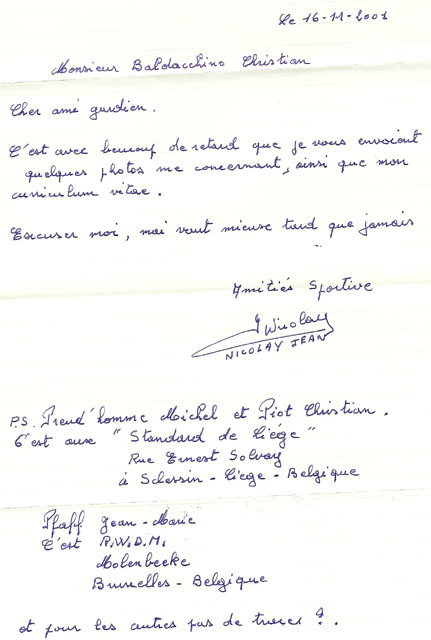 Le 16-11-2001
Monsieur Baldacchino Christian
Cher ami gardien.
C'est avec beaucoup de retard que je vous envoient
quelques photos me concernant, ainsi que mon
curriculum vitae.
Excuser moi, mai vaut mieuse tard que jamais
Amitiés Sportive
JNicolay
NICOLAY JEAN
P.S. Preud'homme Michel et Piot Christian.
C'est aux "Standard de Liége"
Rue Ernest Solvay
à Sclessin - Liege - Belgique
Pfaff Jean-Marie
C'est R.W.D.M.
Molenbeeke
Bruxelles - Belgique
et pour les autres pas de traces ?.